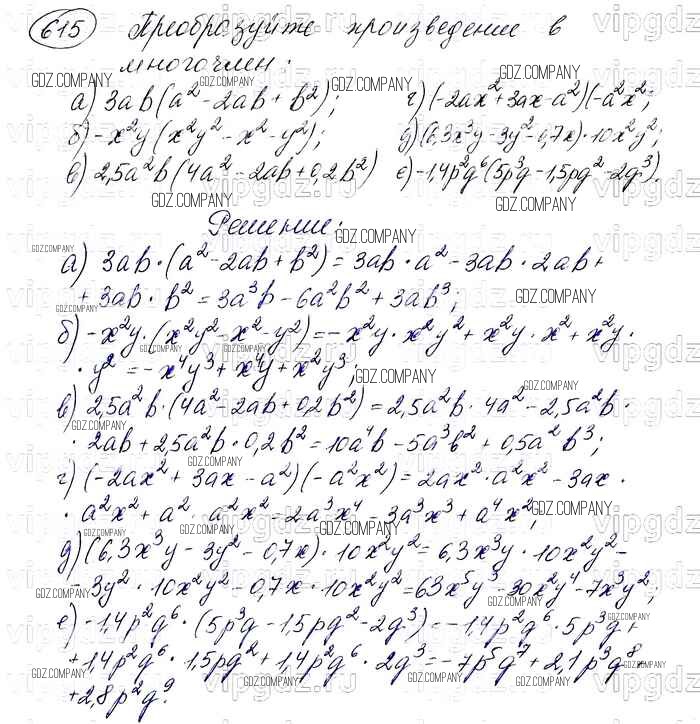 615 Преобразуйте произведение в
многочлен:
а) 3ab(a²-2ab+b²); г) (-2ax²+3ax-a²)(-a²x²;
б) -x²y(x²y²-x²-y²); д) (6,3x³y-3y²-0,7x)·10x²y²;
в) 2,5a²b(4a²-2ab+0,2b²) е) -1,4p²q⁶(5p³q-1,5pq²-2q³).
Решение:
а) 3ab·(a²-2ab+b²)=3ab·a²-3ab·2ab+
+3ab·b²=3a³b-6a²b²+3ab³;
б) -x²y·(x²y²-x²-y²)=-x²y·x²y²+x²y·x²+x²y·
·y²=-x⁴y³+x⁴y+x²y³;
в) 2,5a²b·(4a²-2ab+0,2b²)=2,5a²b·4a²-2,5a²b·
·2ab+2,5a²b·0,2b²=10a⁴b-5a³b²+0,5a²b³;
г) (-2ax²+3ax-a²)(-a²x²)=2ax²·a²x²-3ax·
·a²x²+a²·a²x²=2a³x⁴-3a³x³+a⁴x²;
д) (6,3x³y-3y²-0,7x)·10x²y²=6,3x³y·10x²y²-
-3y²·10x²y²-0,7x·10x²y²=63x⁵y³-30x²y⁴-7x³y²;
е) -1,4p²q⁶·(5p³q-1,5pq²-2q³)=-1,4p²q⁶·5p³q+
+1,4p²q⁶·1,5pq²+1,4p²q⁶·2q³=-7p⁵q⁷+2,1p³q⁸+
+2,8p²q⁹.
GDZ.COMPANY
vipgdz.ru